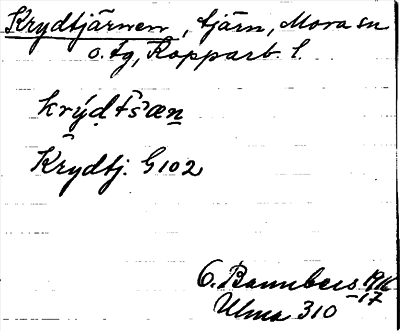 Krydtjärnen, tjärn, Mora sn
o. tg, Kopparb. l.
krýdts̓æn
Krydtj. G 102
O. Bannbers 1916
-17
Ulma 310